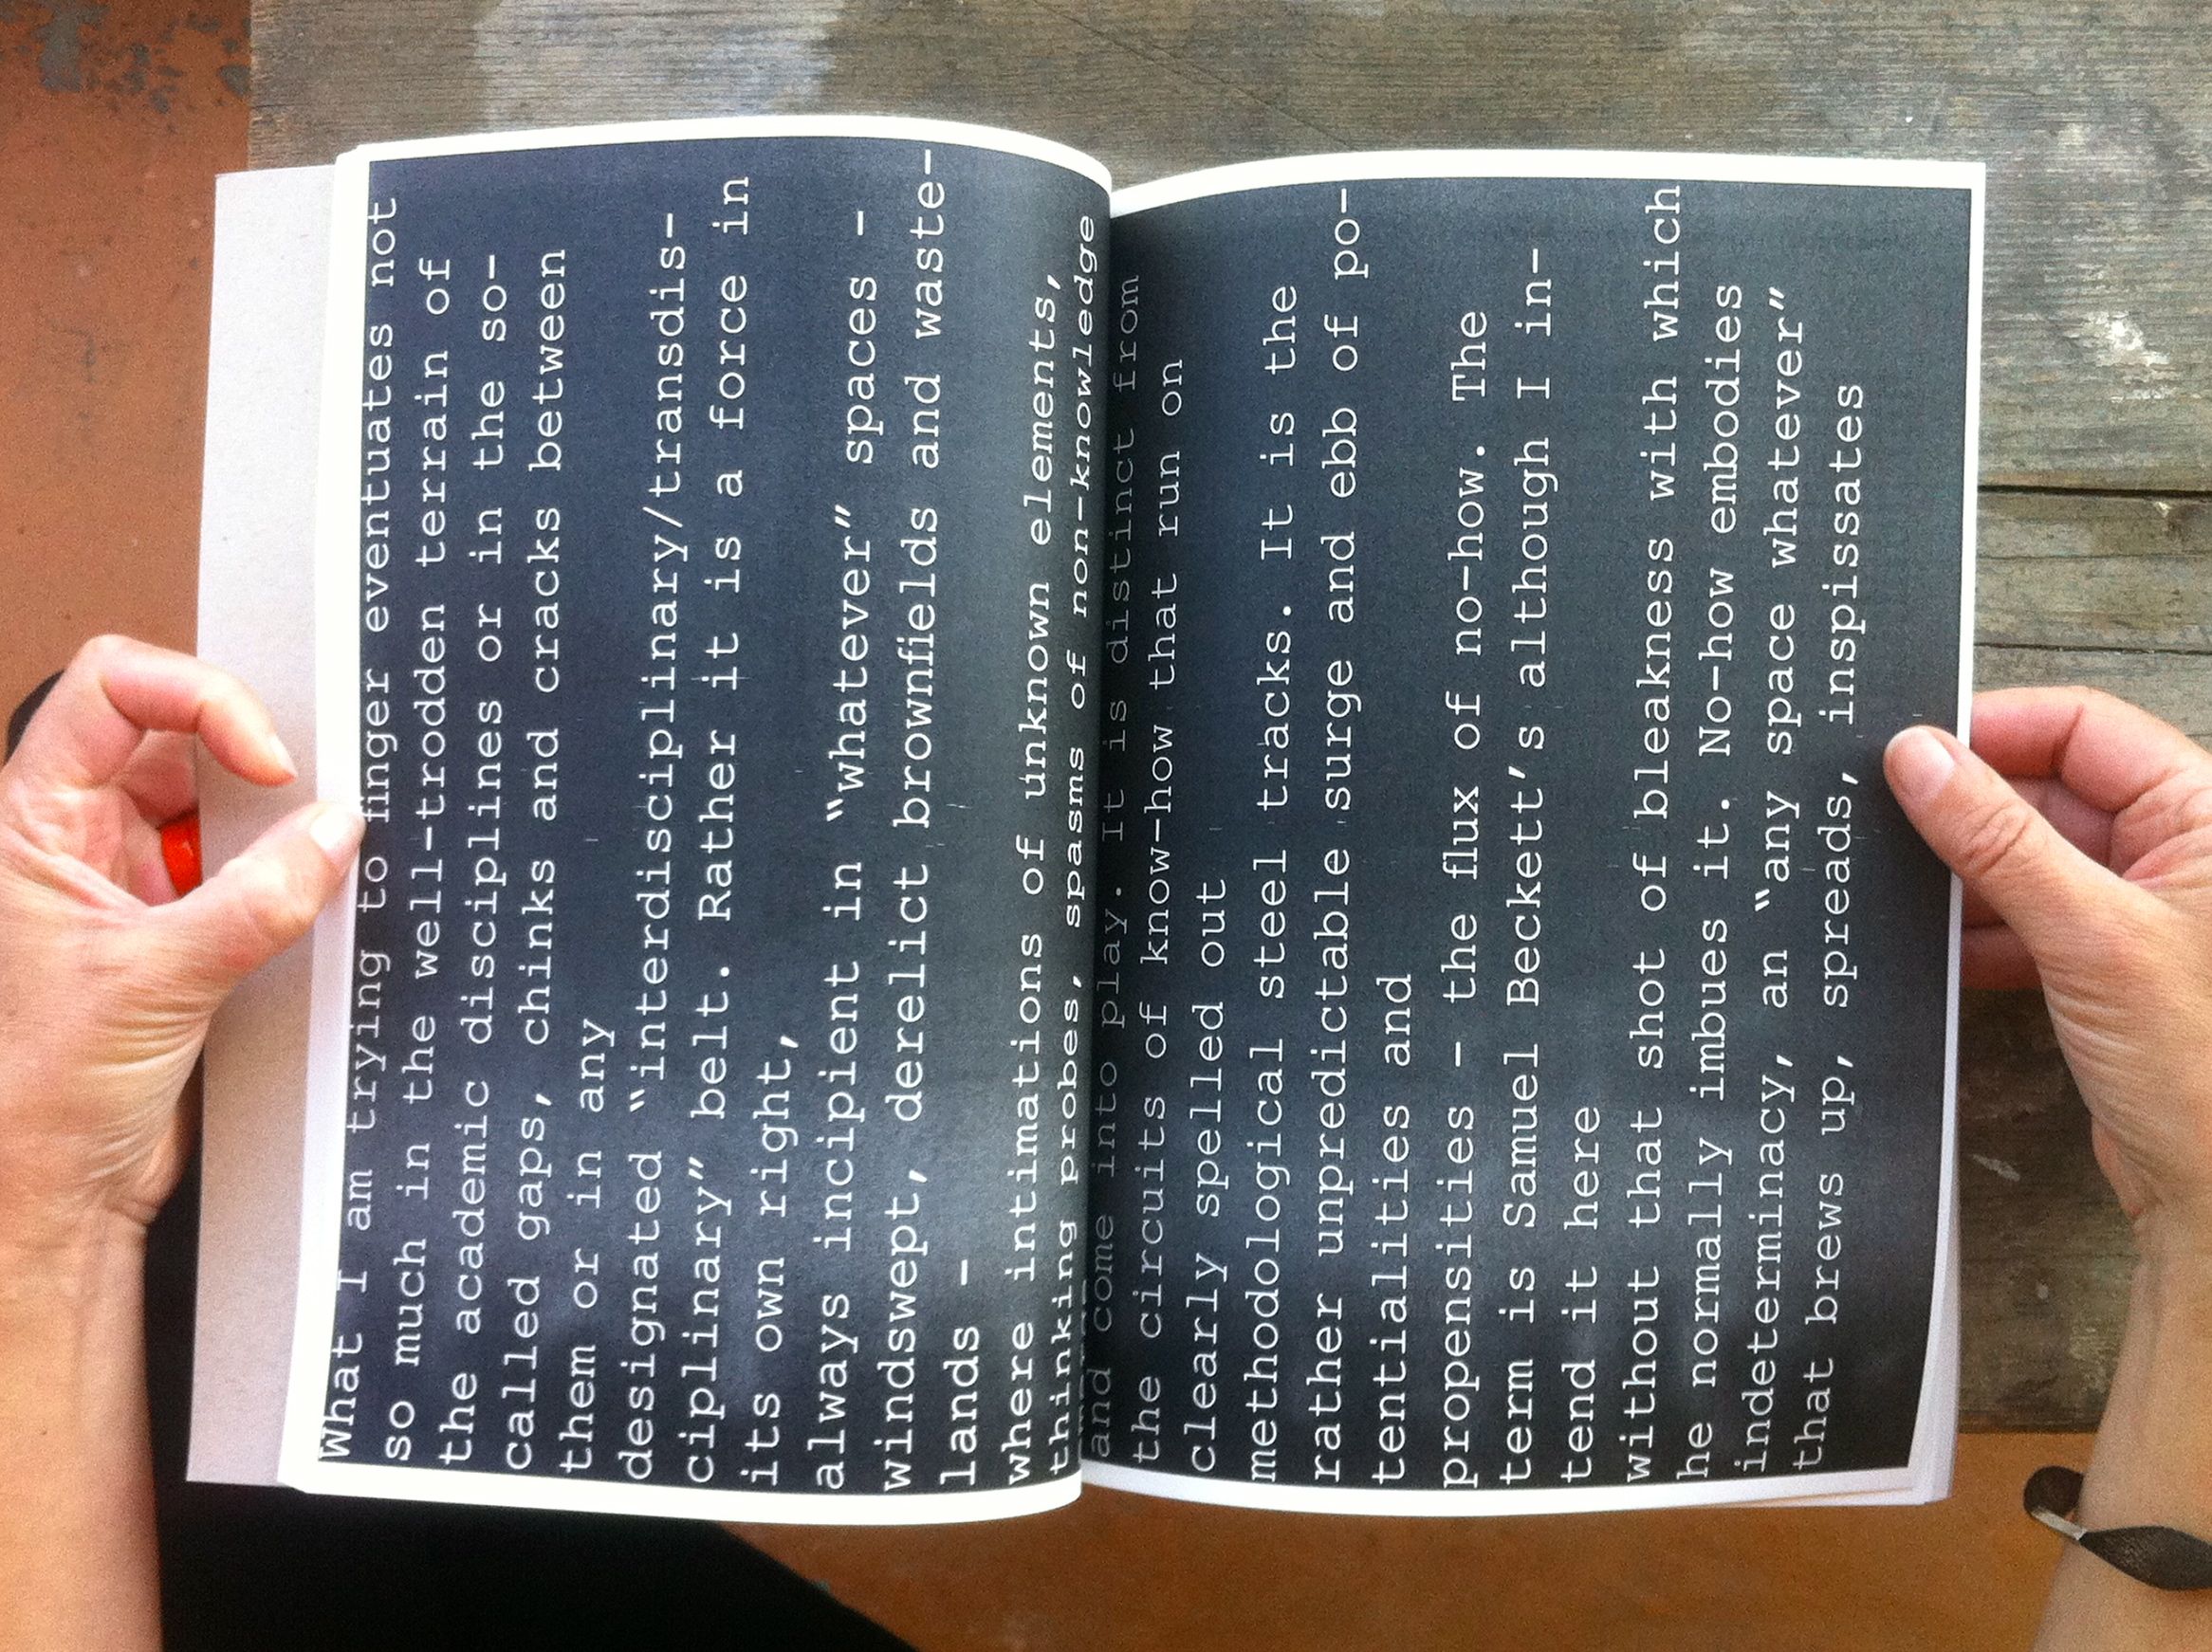 What I am trying to finger eventuates not
so much in the well-trodden terrain of
the academic disciplines or in the so-
called gaps, chinks and cracks between
them or in any
designated “interdisciplinary/transdis-
ciplinary” belt. Rather it is a force in
its own right,
always incipient in “whatever” spaces –
windswept, derelict brownfields and waste-
lands –
where intimations of unknown elements,
thinking probes, spasms of non-knowledge
and come into play. It is distinct from
the circuits of know-how that run on
clearly spelled out
methodological steel tracks. It is the
rather unpredictable surge and ebb of po-
tentialities and
propensities – the flux of no-how. The
term is Samuel Beckett’s although I in-
tend it here
without that shot of bleakness with which
he normally imbues it. No-how embodies
indeterminacy, an “any space whatever”
that brews up, spreads, inspissates